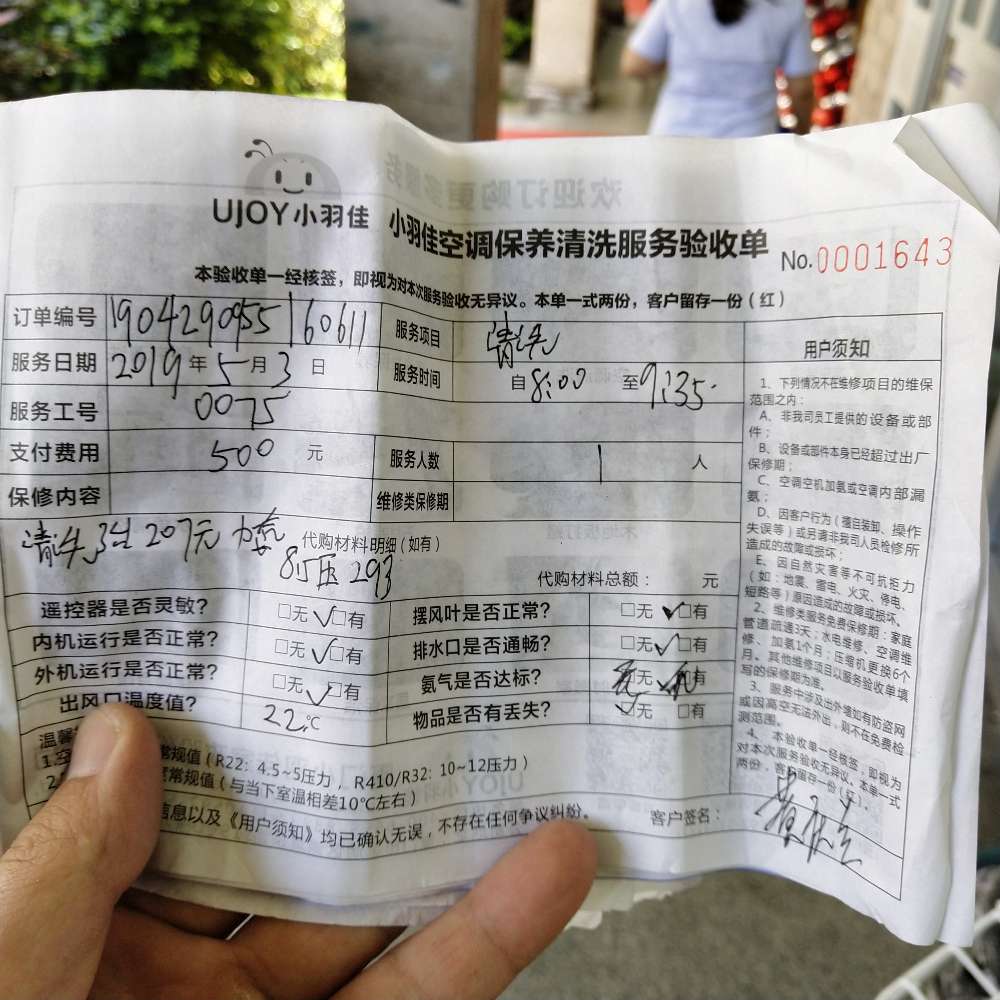 UJOY小羽佳 小羽佳空调保养清洗服务验收单 No.0001643
本验收单一经核签，即视为对本次服务验收无异议。本单一式两份，客户留存一份（红）
订单编号 1904290955160611 服务项目 清洗
服务日期 2019年5月3日 服务时间 自8:00 至9:35
服务工号 0075
支付费用 500 元 服务人数 1 人
保修内容 维修类保修期
清洗 207元 代购材料明细（如有）
压 293 代购材料总额： 元
遥控器是否灵敏？ □无 ✓□有 摆风叶是否正常？ □无 ✓□有
内机运行是否正常？ □无 ✓□有 排水口是否通畅？ □无 ✓□有
外机运行是否正常？ □无 ✓□有 氨气是否达标？ 无 □有
出风口温度值？ 22℃ 物品是否有丢失？ ✓无 □有
温馨
1.空 常规值（R22：4.5~5压力，R410/R32：10~12压力）
2 常规值（与当下室温相差10℃左右）
信息以及《用户须知》均已确认无误，不存在任何争议纠纷。 客户签名：
用户须知
1、下列情况不在维修项目的维保
范围之内：
A、非我司员工提供的设备或部
件；
B、设备或部件本身已经超过出厂
保修期；
C、空调空机加氨或空调内部漏
氨；
D、因客户行为（擅自装卸、操作
失误等）或另请非我司人员检修所
造成的故障或损坏；
E、因自然灾害等不可抗拒力
（如：地震、雷电、火灾、停电、
短路等）原因造成的故障或损坏。
2、维修类服务免费保修期：家庭
管道疏通3天；水电维修、空调维
修、加氨1个月；压缩机更换6个
月、其他维修项目以服务验收单填
写的保修期为准。
3、服务中涉及出外墙如有防盗网
或因高空无法外出，则不在免费检
测范围。
4、本验收单一经核签，即视为
对本次服务验收无异议。本单一式
两份，客户留存一份（红）。
欢迎订购更多服务